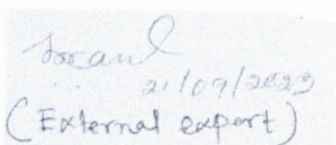 21/09/2022
(External expert)